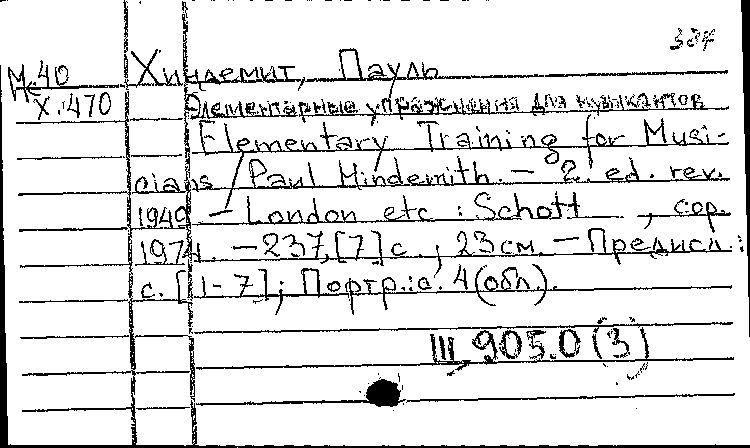 384
М.40 Хиндемит, Пауль
Х.470 Элементарные упражнения для музыкантов
Elementary Training for Musi-
cians / Paul Hindemith. — 2. ed. rev.
1949 — London etc : Schott , cop.
1974. — 237, [7] с. ; 23 см. — Предисл.:
с. [1-7]; Портр.: с. 4 (обл.).
III 905.0 (3)